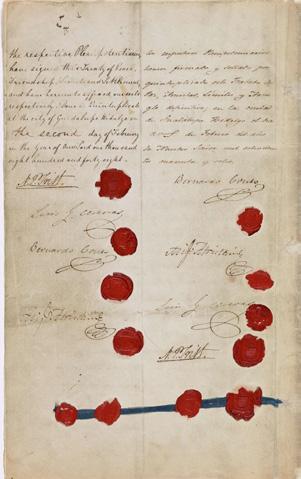 the respective Plenipotentiaries
have signed this Treaty of Peace,
Friendship, Limits and Settlement,
and have hereunto affixed our seals
respectively. Done in Quintuplicate
at the city of Guadalupe Hidalgo on
the second day of February
in the Year of our Lord one thousand
eight hundred and forty eight.
N. P. Trist
Luis G. Cuevas
Bernardo Couto
Migl Atristain
los respectivos Plenipotenciarios
hemos firmado y sellado por
quintuplicado este Tratado de
Paz, Amistad, Límites y Arre
glo definitivo, en la ciudad
de Guadalupe Hidalgo el dia
dos de Febrero del año
de Nuestro Señor mil ochocien
tos cuarenta y ocho.
Bernardo Couto
Migl Atristain
Luis G. Cuevas
N. P. Trist